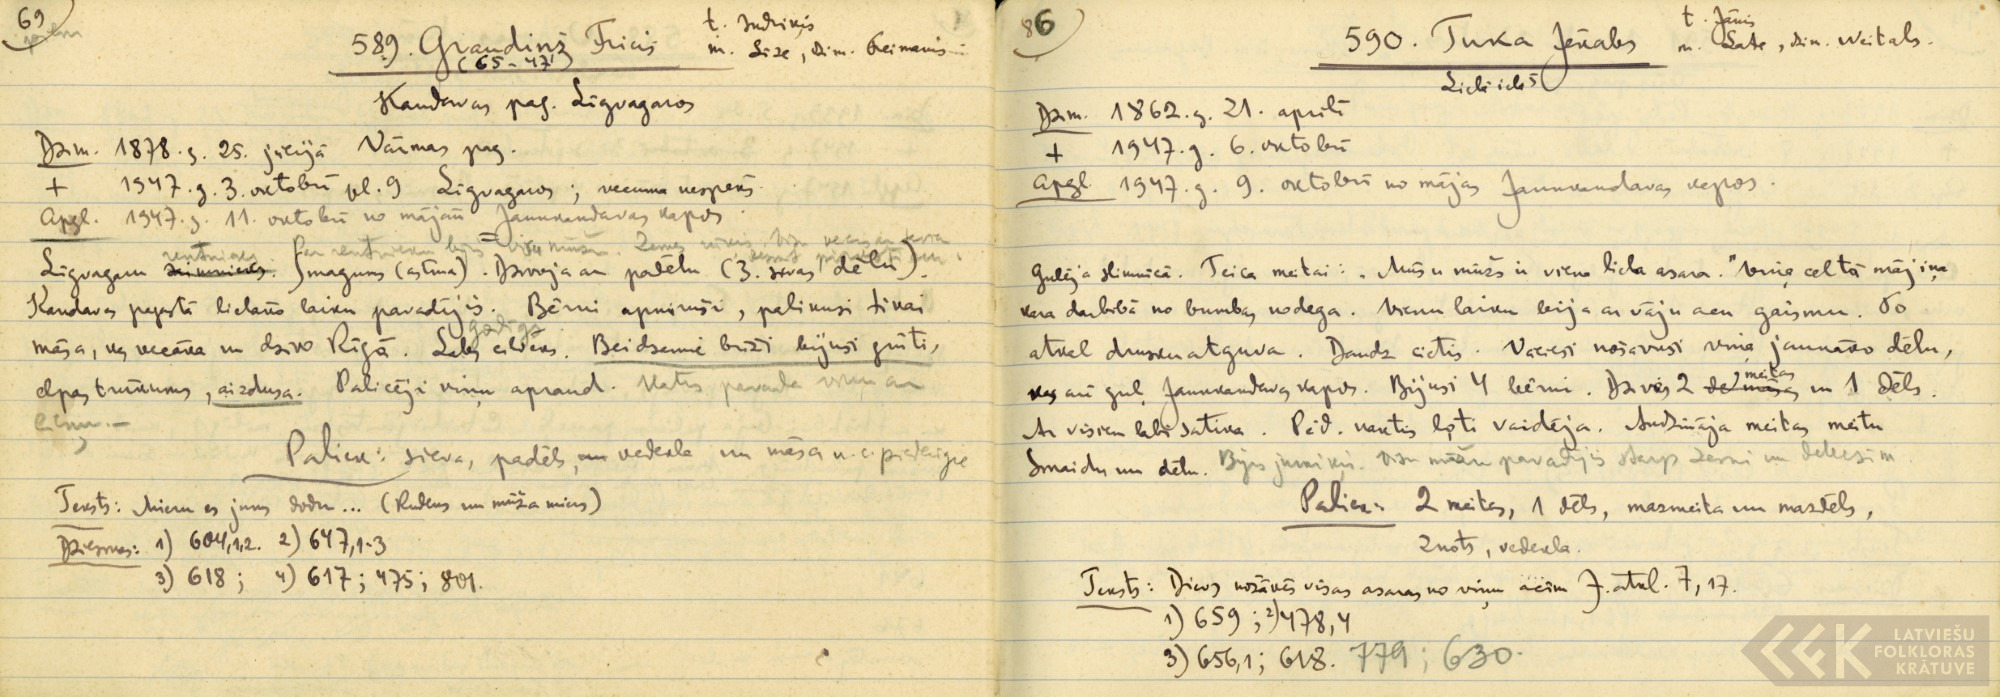 69
589. Graudiņš Fricis
(65-47)
t. Indriķis
m. Līze, dzim. Freimanis
Kandavas pag. Līgvagaros
Dzim. 1878.g. 25. jūlijā Vārmas pag.
+ 1947.g. 3. oktobrī pl. 9 Līgvagaros; vecuma nespēks.
Apgl. 1947.g. 11. oktobrī no mājām Jaunkandavas kapos.
rentnieks. Par rentnieku bijis visu mūžu. Zemes
Līgvagaru saimnieks. Smagums (astma). Dzīvoja ar padēlu (3. sievas dēlu).
Kandavas pagastā lielāko laiku pavadījis. Bērni apmiruši, palikusi tikai
godīgs
māsa, kas vecāka un dzīvo Rīgā. Labs cilvēks. Beidzamie brīži bijuši grūti,
elpas trūkums, aizdusa. Palicēji viņu apraud. Katrs pavada viņu ar
cieņu.-
Paliek: sieva, padēls, un vedekla un māsa u.c. piederīgie
Teksts: Mieru es jums dodu... (Rudens un mūža miers)
Dziesmas: 1) 604,1,2. 2) 647,1-3
3) 618; 4) 617; 475; 801.
86
590. Tuka Jēkabs
t. Jānis
m. Late, dzim. Weitals.
Lielielā 5
Dzim. 1862.g. 21. aprīlī
+ 1947.g. 6. oktobrī
Apgl. 1947.g. 9. oktobrī no mājas Jaunkandavas kapos.
Gulēja slimnīcā. Teica meitai: "Mūsu mūžs ir viena liela asara." Viņa celtā mājiņa
kara darbībā no bumbas nodega. Vienu laiku bija ar vāju acu gaismu. To
atkal drusku atguva. Daudz cietis. Vācieši nošāvuši viņa jaunāko dēlu,
kas arī guļ Jaunkandavas kapos. Bijuši 4 bērni. Dzīvās 2 meitas un 1 dēls.
Ar visiem labi satika. Pēd. naktis ļoti vaidēja. Audzināja meitas meitu
Smaidu un dēlu. Bijis jūrnieks. Visu mūžu pavadījis starp zemi un debesīm.
Paliek: 2 meitas, 1 dēls, mazmeita un mazdēls,
znots, vedekla.
Teksts: Dievs nožāvēs visas asaras no viņu acīm J. atkl. 7,17.
1) 659; 2) 478,4
3) 656,1; 618. 779; 630.
LATVIEŠU
FOLKLORAS
KRĀTUVE